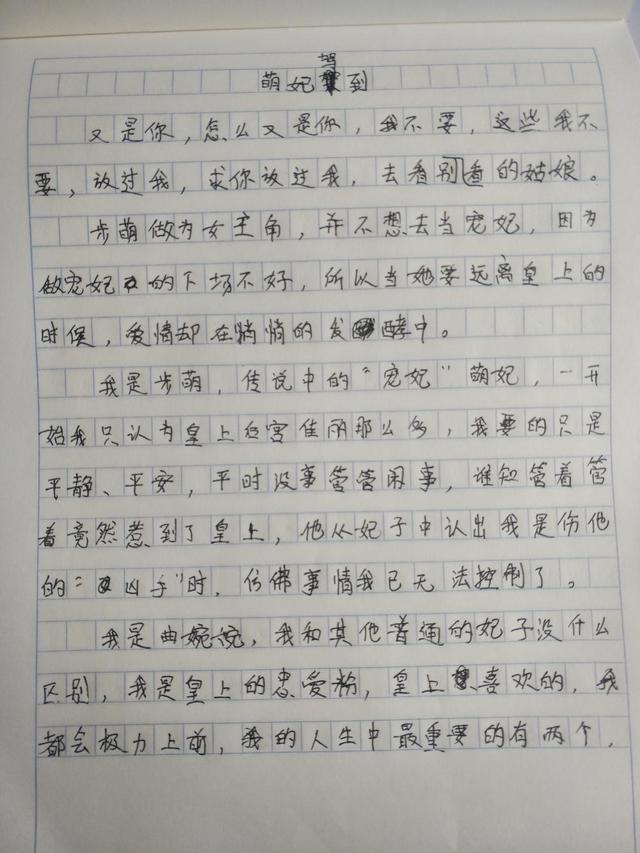 萌妃驾到
又是你，怎么又是你，我不要，这些我不
要，放过我，求你放过我，去看别的姑娘。
步萌做为女主角，并不想去当宠妃，因为
做宠妃的下场不好，所以当她要远离皇上的
时候，爱情却在悄悄的发酵中。
我是步萌，传说中的“宠妃”萌妃，一开
始我只认为皇上后宫佳丽那么多，我要的只是
平静、平安，平时没事管管闲事，谁知管着管
着竟然惹到了皇上，他从妃子中认出我是伤他
的“凶手”时，仿佛事情我已无法控制了。
我是曲婉婉，我和其他普通的妃子没什么
区别，我是皇上的忠爱粉，皇上喜欢的，我
都会极力上前，我的人生中最重要的有两个，